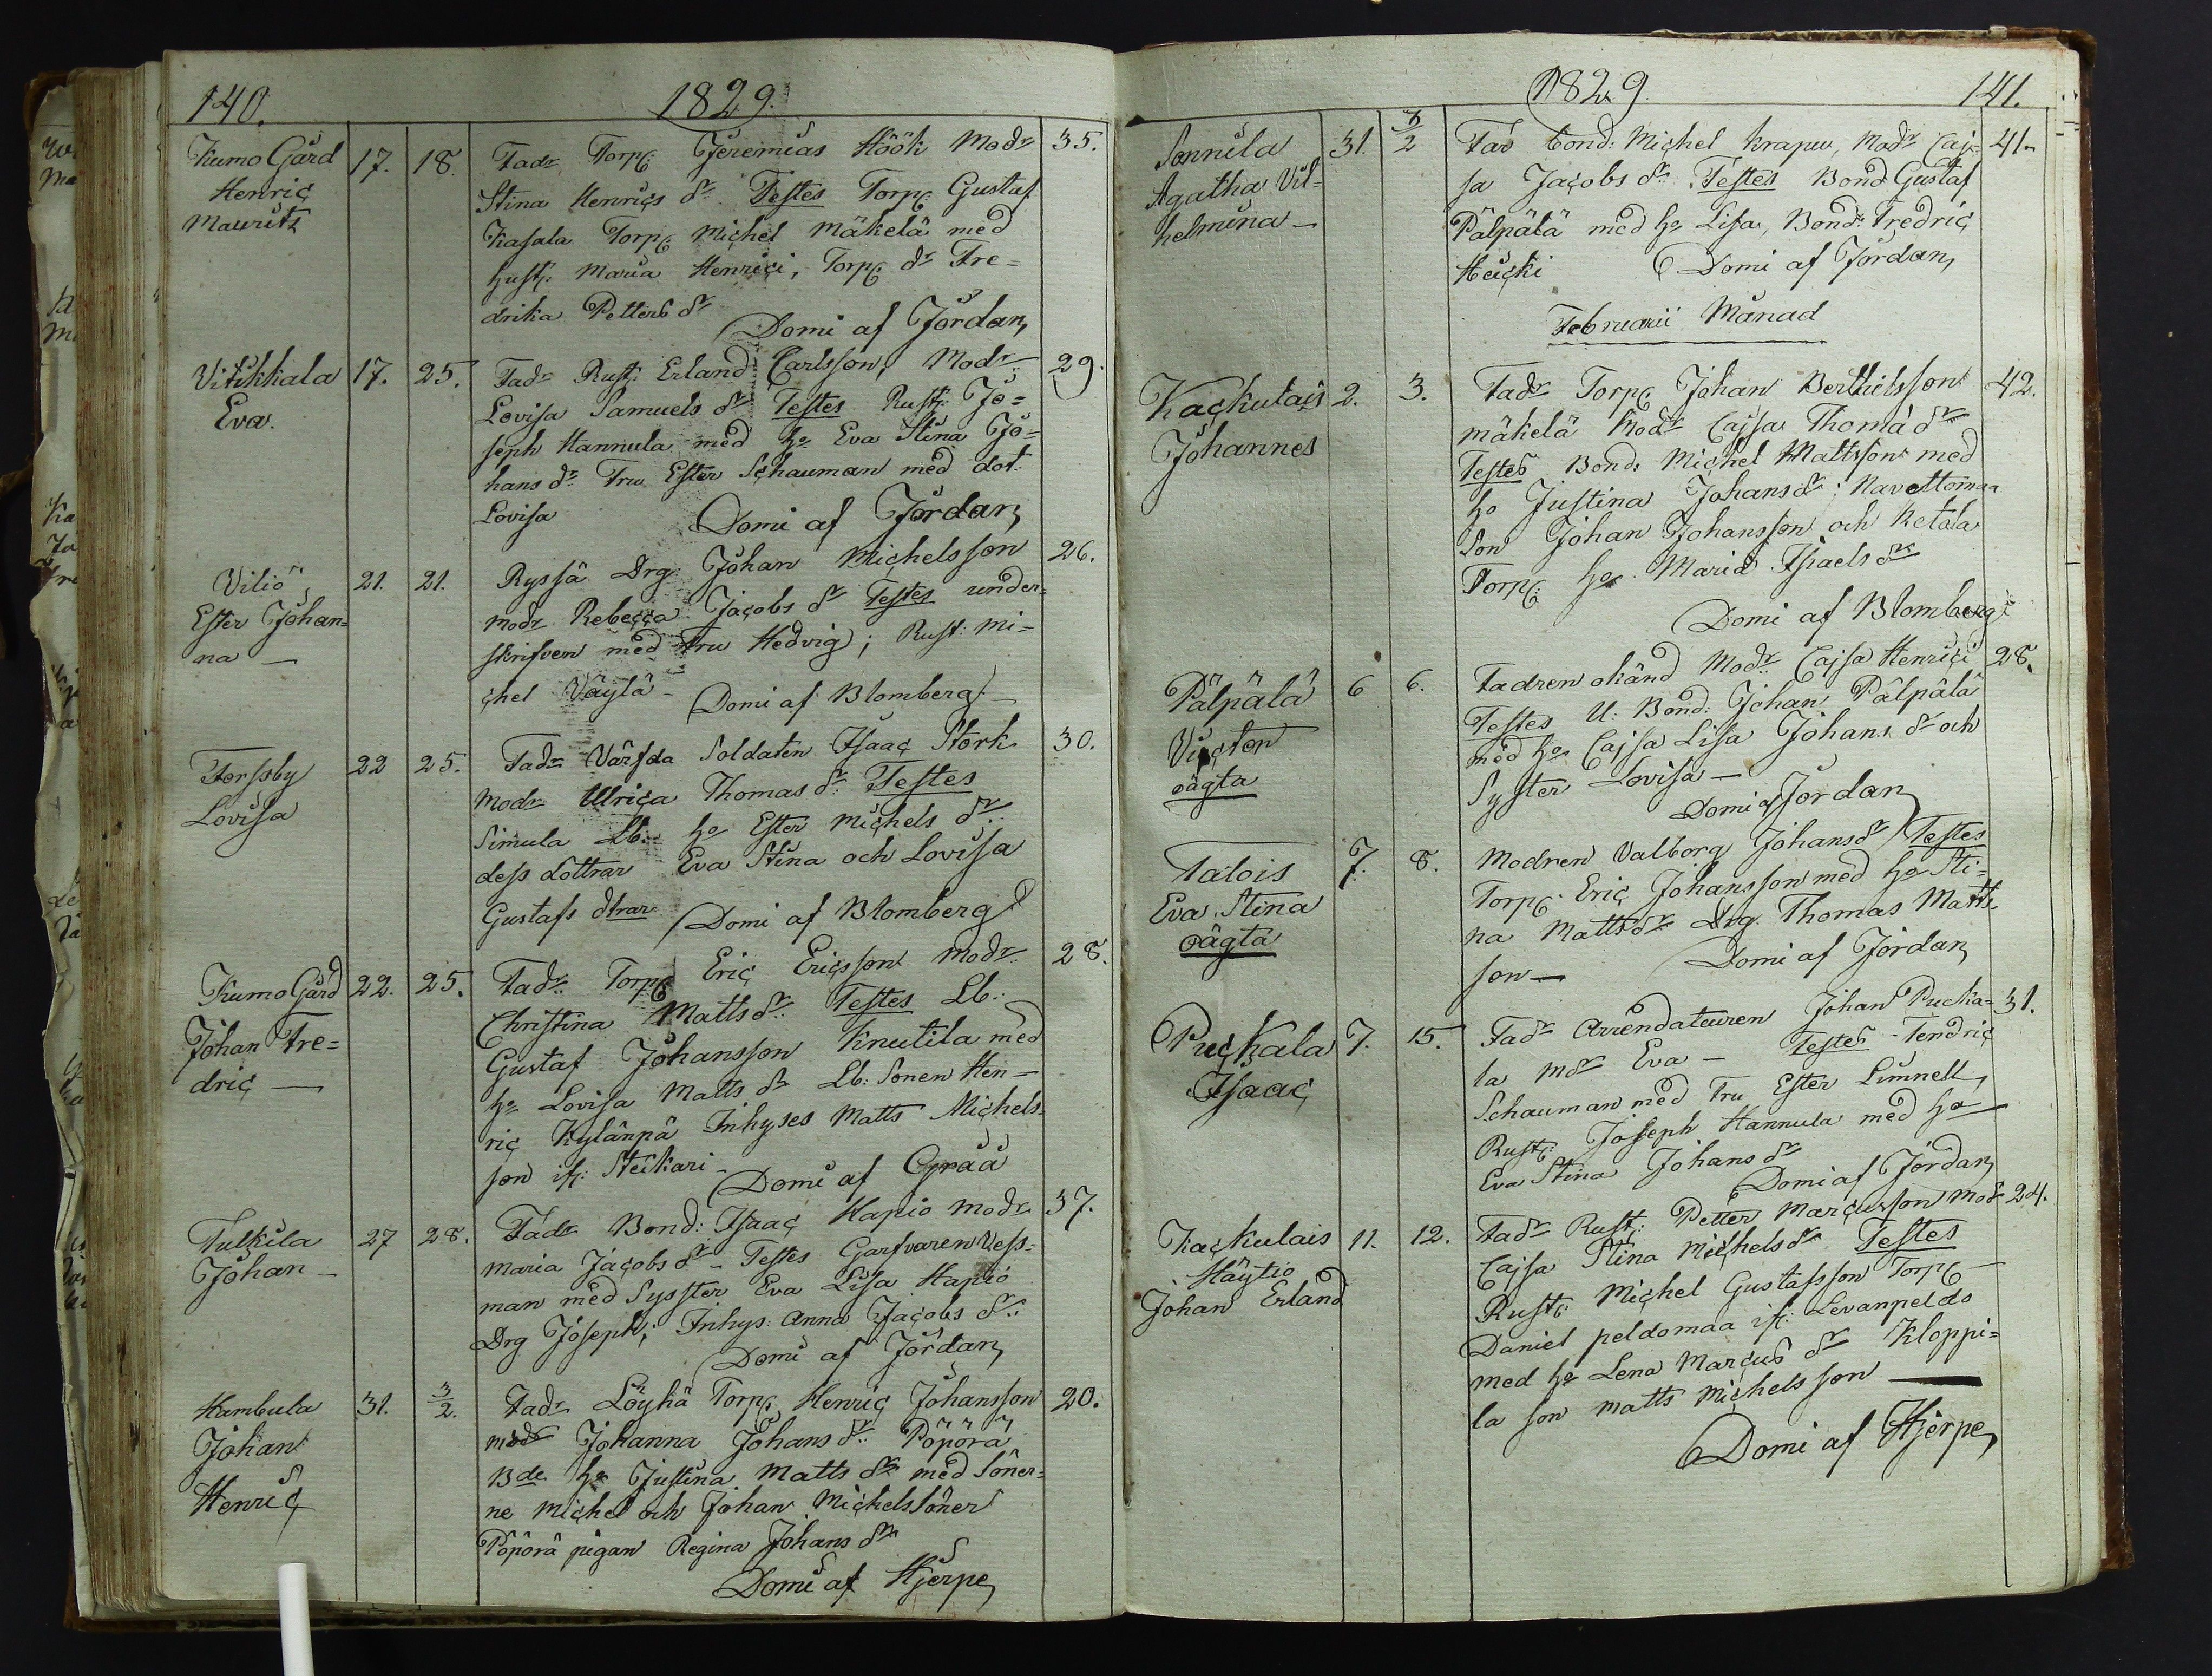 140.
1829.
Kumo Gård 17. 18. Fadr Torp: Jeremias Höök Modr 35.
Henric
Mauritz
Stina Henrics dr Testes Torp: Gustaf
Kasala Torp: Michel Mäkelä med
hust: Maria Henrici, Torp: dr Fre=
drika Petters dr
Domi af Jordan
Vitikkala 17. 25. Fadr Rust: Erland Carlsson, Modr 29.
Eva.
Lovisa Samuels dr Testes Rust: Jo=
seph Hannula med ho Eva Stina Jo=
hans dr Fru Ester Schauman med dot:
Lovisa Domi af Jordan
Viliö 21. 21. Ryssä Drg: Johan Michelsson 26.
Ester Johan=
na —
modr Rebecca Jacobs dr Testes under=
skrifven med Fru Hedvig; Rust: Mi=
chel Väylä – Domi af Blomberg
Forssby 22 25. Fadr Värfda Soldaten Isaac Stork 30.
Lovisa
modr Ulrica Thomas dr Testes
Simula Lb: ho Ester Michels dr
dess döttrar Eva Stina och Lovisa
Gustafs dtrar Domi af Blomberg
Kumo Gård 22. 25. Fadr Torp: Eric Ericsson modr 28.
Johan Fre=
dric —
Christina Matts dr Testes Lb:
Gustaf Johansson Knutila med
ho Lovisa Matts dr Lb: Sonen Hen=
ric Kylänpä Inhyses Matts Michels=
son if: Steikari –
Domi af Gråå
Tulkila 27 28. Fadr Bond: Isaac Hapio modr 37.
Johan –
Maria Jacobs dr – Testes Garfvaren Vess=
man med Syster Eva Lisa Hapio
Drg Joseph; Inhys: Anna Jacobs dr
Domi af Jordan
Kambula 31. 3/2. Fadr Löyhä Torp: Henric Johansson 20.
Johan
Henric
modr Johanna Johans dr Pöpörä
Bde ho Justina Matts dr med Söner=
ne Michel och Johan Michelssöner
Pöpörä pigan Regina Johans dr
Domi af Hjerpe
1829.
141.
Sonnila 31. 3/2 Far bond: Michel Krapu, Modr Caj= 41.
Agatha Vil=
helmina –
sa Jacobs dr Testes Bond Gustaf
Pälpälä med ho Lisa, Bond: Fredric
Heicki Domi af Jordan
Februarii Månad
Kackulais 2. 3. Fadr Torp: Johan Berthilsson 42.
Johannes
mäkelä Modr Cajsa Thomæ dr
Testes Bond: Michel Mattsson med
ho Justina Johans dr; Navettomaa
Son Johan Johansson och Ketola
Torp: ho Maria Isaels dr
Domi af Blomberg
Pälpälä 6 6. Fadren okänd Modr Cajsa Henrici 28.
Victor
oägta
Testes U: Bond: Johan Pälpälä
med ho Cajsa Lisa Johans dr och
Syster Lovisa –
Domi af Jordan
Talois 7. 8. Modren Valborg Johans dr Testes
Eva Stina
oägta
Torp: Eric Johansson med ho Sti=
na Matts dr Drg. Thomas Matts=
son — Domi af Jordan
Puckala 7. 15. Fadr Arrendatewren Johan Pucka= 31.
Isaac
la mdr Eva – Testes Fendric
Schauman med Fru Ester Limnell,
Rust: Joseph Hannula med ho
Eva Stina Johans dr
Domi af Jordan
Kackulais 11. 12. Fadr Rust: Petter Marcusson modr 24.
Häytiö
Johan Erland
Cajsa Stina Michels dr Testes
Rust: Michel Gustafsson Torp:
Daniel peldomaa if: Levanpeldo
med ho Lena Marcus dr Kloppi=
la son Matts Michelsson —
Domi af Hjerpe